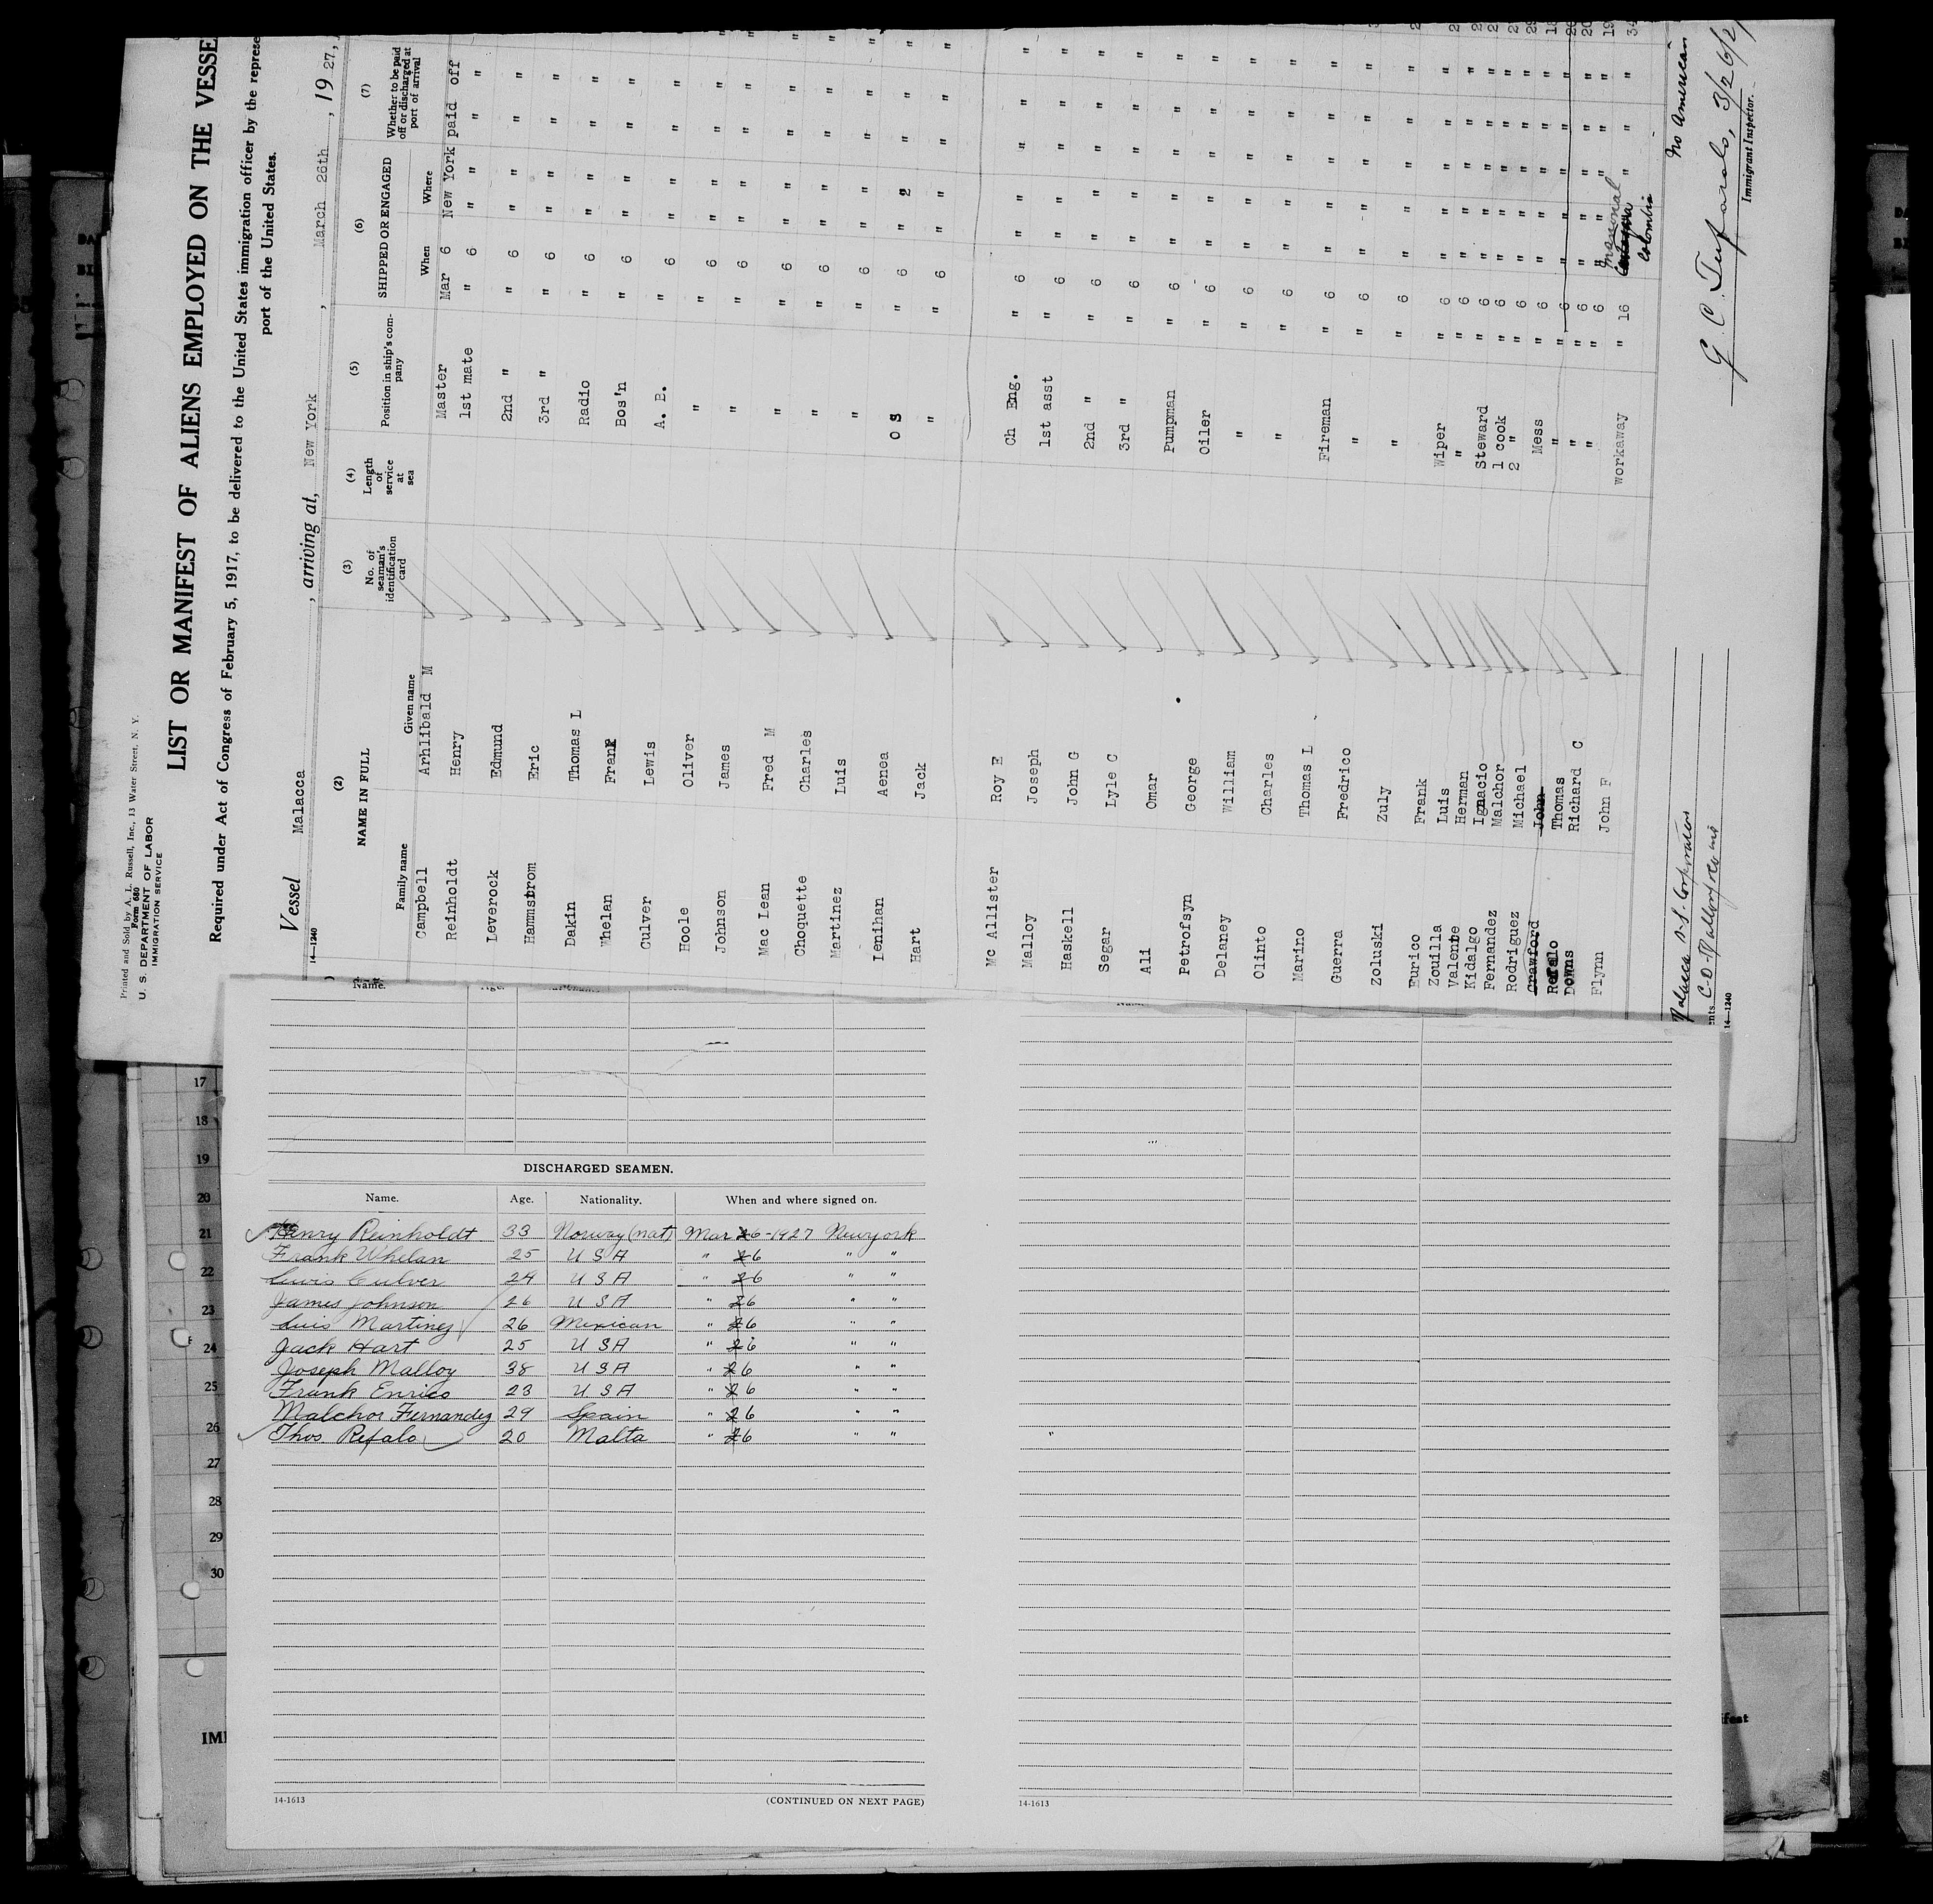 Printed and Sold by A. L. Russell, Inc., 13 Water Street, N. Y.
Form 680
U. S. DEPARTMENT OF LABOR
IMMIGRATION SERVICE
LIST OR MANIFEST OF ALIENS EMPLOYED ON THE VESSE
Required under Act of Congress of February 5, 1917, to be delivered to the United States immigration officer by the represe
port of the United States.
Vessel Malacca , arriving at, New York , March 26th , 19 27,
14—1240
(2) (3) (4) (5) (6) (7)
NAME IN FULL No. of seaman's identification card Length of service at sea Position in ship's company SHIPPED OR ENGAGED Whether to be paid off or discharged at port of arrival
Family name Given name When Where
Campbell Arhlibald M Master Mar 6 New York paid off
Reinholdt Henry 1st mate " 6 " " " "
Leverock Edmund 2nd " " 6 " " " "
Hammstrom Eric 3rd " " 6 " " " "
Dakin Thomas L Radio " 6 " " " "
Whelan Frank Bos'n " 6 " " " "
Culver Lewis A. B. " 6 " " " "
Hoole Oliver " " 6 " " " "
Johnson James " " 6 " " " "
Mac Lean Fred M " " 6 " " " "
Choquette Charles " " 6 " " " "
Martinez Luis " " 6 " " " "
Lenihan Aenea O S " 6 " 2 " "
Hart Jack " " 6 " " " "
Mc Allister Roy E Ch Eng. " 6 " " " "
Malloy Joseph 1st asst " 6 " " " "
Haskell John G 2nd " " 6 " " " "
Segar Lyle C 3rd " " 6 " " " "
Ali Omar Pumpman " 6 " " " "
Petrofsyn George Oiler " 6 " " " "
Delaney William " " 6 " " " "
Olinto Charles " " 6 " " " "
Marino Thomas L Fireman " 6 " " " "
Guerra Fredrico " " 6 " " " "
Zoluski Zuly " " 6 " " " "
Eurico Frank Wiper " 6 " " " "
Zouilla Luis " " 6 " " " "
Valente Herman Steward " 6 " " " "
Kidalgo Ignacio 1 cook " 6 " " " "
Fernandez Malchor 2 " " 6 " " " "
Rodriguez Michael Mess " 6 " " " "
Crawford John " " 6 " " " "
Refalo Thomas " " 6 " " " "
Downs Richard C " " 6 " " " "
Flynn John F workaway " 16 Colombia " "
No American
G. C. 3/26/2
Immigrant Inspector.
Malacca S.S. Corporation
nts C-D-Mallory & Co inc
14—1240
Name. Age.
17
18
19
20
21
22
23
24
25
26
27
28
29
30
IMI
ifest
DISCHARGED SEAMEN.
Name. Age. Nationality. When and where signed on.
Henry Reinholdt 33 Norway (nat) Mar 26-1927 New york
Frank Whelan 25 U S A " 26 " "
Lewis Culver 24 U S A " 26 " "
James Johnson 26 U S A " 26 " "
Luis Martinez 26 Mexican " 26 " "
Jack Hart 25 U S A " 26 " "
Joseph Malloy 38 U S A " 26 " "
Frank Enrico 23 U S A " 26 " "
Malchor Fernandez 29 Spain " 26 " "
Thos Refalo 20 Malta " 26 " "
14-1613 (CONTINUED ON NEXT PAGE)
14-1613